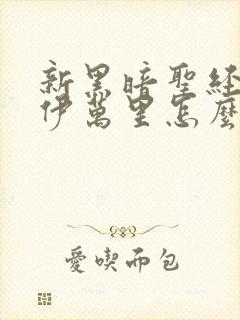 新黑暗聖經
伊萬里怎麼
愛喫面包